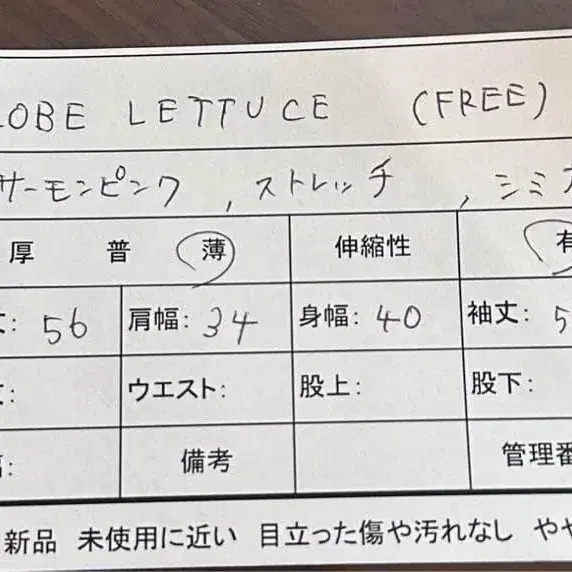 OBE LETTUCE (FREE)
サーモンピンク, ストレッチ, シミ
厚 普 薄 伸縮性 有
: 56 肩幅: 34 身幅: 40 袖丈: 5
: ウエスト: 股上: 股下:
: 備考 管理番
新品 未使用に近い 目立った傷や汚れなし やや